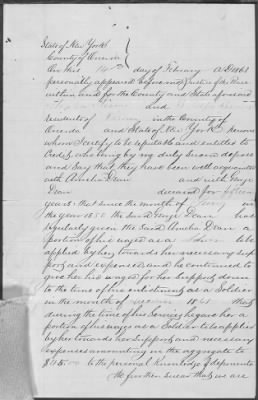 State of New York }
County of Oneida }
On this 14th day of February A.D. 1863
personally appeared before me a Justice of the Peace
within and for the County and State aforesaid
and
residents of in the County of
Oneida and State of New York persons
whom I certify to be reputable and entitled to
Credit, who being by me duly sworn depose
and Say that they have been well acquainted
with Amelia Dean and with George
Dean deceased for fifteen
years; that since the month of in
the year 18 the Said George Dean has
regularly given the Said Amelia Dean a
portion of his wages as a to be
applied by her towards her necessary sup
port and expenses, and he continued to
give her his wages for her Support down
to the time of his enlistment as a Soldier
in the month of 1861 that
during the time of his Service he gave her a
portion of his wages as a Soldier to be applied
by her towards her Support and necessary
expenses amounting in the aggregate to
$ to the personal Knowledge of deponents
We further swear that we are